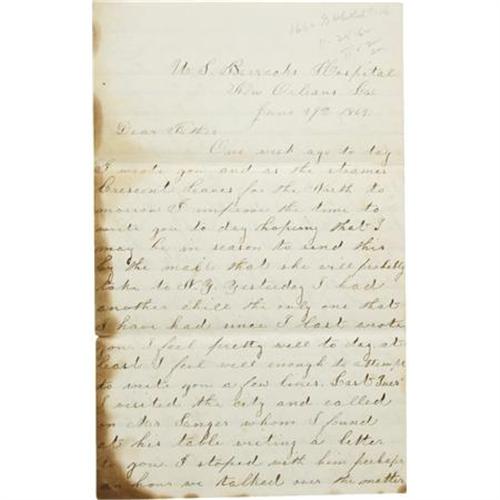 U. S. Barracks Hospital
New Orleans La
June 29th 186
Dear Father
One week ago to day
I wrote you and as the steamer
Crescent leaves for the North to
morrow I improve the time to
write you to day hoping that I
may be in season to send this
by the mail that she will probably
take to N.Y. Yesterday I had
another chill the only one that
I have had since I last wrote
you I feel pretty well to day at
least I feel well enough to attempt
to write you a few lines. Last Tues
I visited the city and called
on Mr Sanger whom I found
at his table writing a letter
to you. I stoped with him perhaps
an hour we talked over the matter